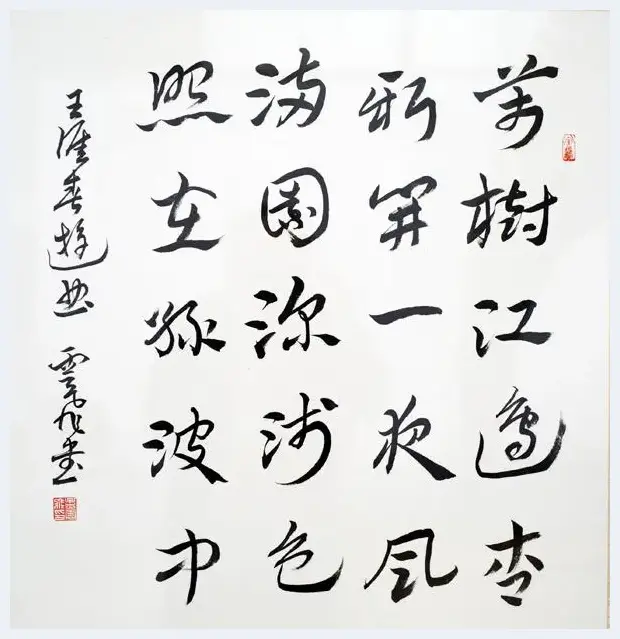 萬樹江邊杏
新開一夜風
滿園深淺色
照在綠波中
王涯春遊曲